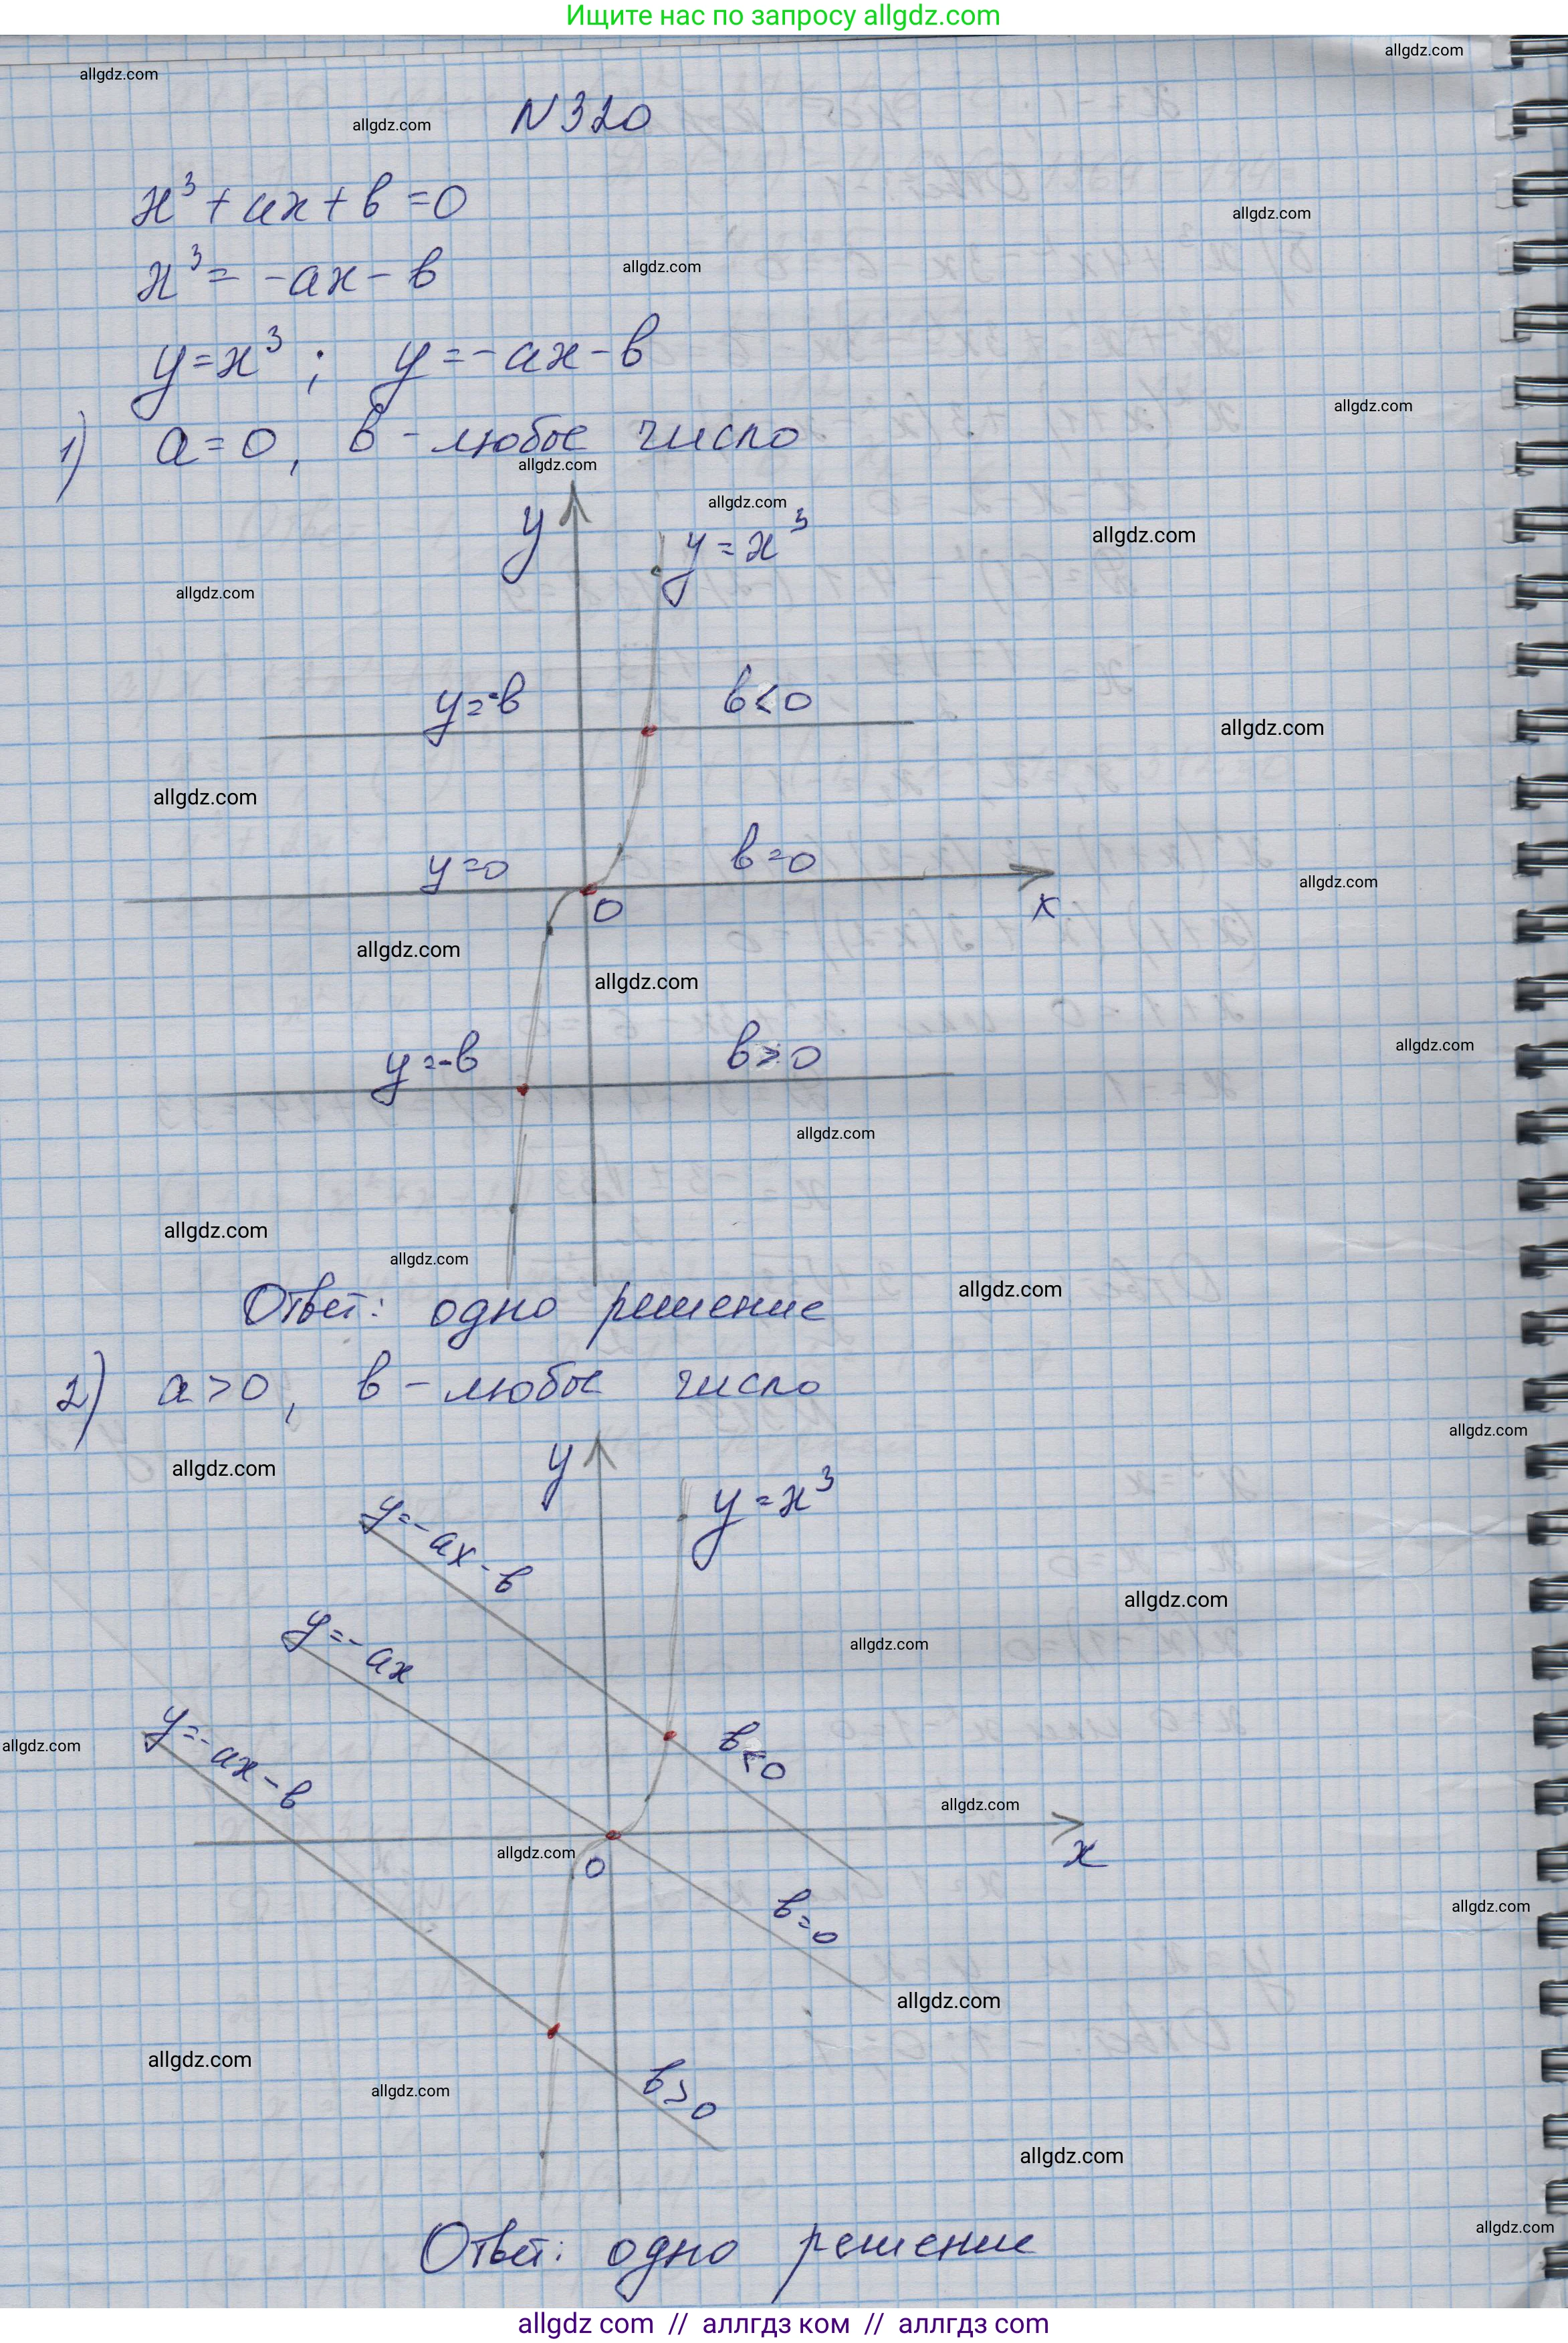 Ищите нас по запросу allgdz.com
allgdz.com
allgdz.com
allgdz.com
N 320
x³ + ax + b = 0
allgdz.com
x³ = -ax - b
allgdz.com
y = x³ ; y = -ax - b
allgdz.com
1) a = 0, b - любое число
allgdz.com
allgdz.com
y
y = x³
allgdz.com
allgdz.com
y = -b
b < 0
allgdz.com
allgdz.com
y = 0
b = 0
allgdz.com
0
x
allgdz.com
allgdz.com
y = -b
b > 0
allgdz.com
allgdz.com
allgdz.com
allgdz.com
allgdz.com
Ответ: одно решение
2) a > 0, b - любое число
allgdz.com
y
allgdz.com
y = x³
y = -ax - b
allgdz.com
y = -ax
allgdz.com
y = -ax - b
allgdz.com
b < 0
allgdz.com
allgdz.com
x
0
b = 0
allgdz.com
allgdz.com
allgdz.com
allgdz.com
b > 0
allgdz.com
allgdz.com
Ответ: одно решение
allgdz com // аллгдз ком // аллгдз com